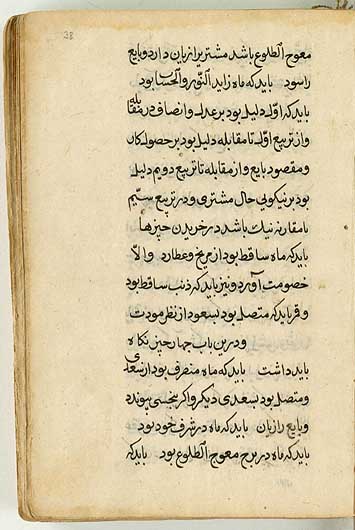 38
معوج الطلوع باشد مشتریرا زیان دارد و بایع
را سود باید که ماه زاید النور و الحساب بود
باید که اول دلیل بود بر عدل و انصاف در مقابله
و از تربیع اول تا مقابله دلیل بود بر حصول کار
و مقصود بایع و از مقابله تا تربیع دویم دلیل
بود بر نیکویی حال مشتری و در تربیع سیم
تا مقارنه نیک باشد در خریدن چیزها
باید که ماه ساقط بود از مریخ و عطارد و الّا
خصومت آورد و نیز باید که ذنب ساقط بود
و قمر باید که متصل بود بسعود از نظر مودت
و درین باب چهار چیز نگاه
باید داشت باید که ماه منصرف بود از سعدی
و متصل بود بسعدی دیگر و اگر بنحسی پیوندد
و بایع را زیان باید که ماه در شرف خود بود
باید که ماه در برج معوج الطلوع بود باید که